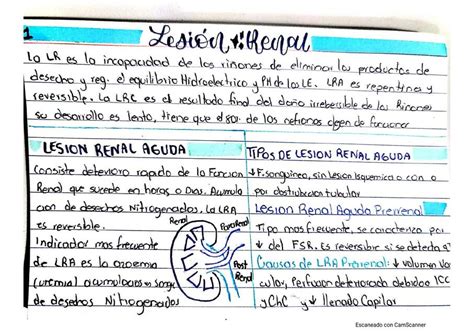 1
Lesión Renal
La LR es la incapacidad de los riñones de eliminar los productos de
desecho y reg. el equilibrio Hidroelectrico y PH de los LE. LRA es repentina y
reversible. La LRC es el resultado final del daño irreberisble de los Riñones
su desarrollo es lento, tiene que el 80% de las nefronas dejen de funcionar
LESION RENAL AGUDA
Consiste deterioro rapido de la Funcion
Renal que sucede en horas o Dias. Acumula
cion de desechos Nitrogenados. la LRA
es reversible.
Indicador mas frecuente
de LRA es la azoemia
(uremia) acumulacion en sangre
de desechos Nitrogenados
Renal
PreRenal
Post
Renal
TIPOS DE LESION RENAL AGUDA
↓F. sanguineo, sin Lesion Isquemica o con o
por obstruccion tubular
Lesion Renal Aguda Prerrenal
Tipo mas frecuente, se caracteriza por
↓ del FSR. Es reversible si se detecta
Causas de LRA Prerrenal: ↓ volumen Vas
cular, Perfusion deteriorada debido a ICC
y ChC y ↓ llenado Capilar
Escaneado con CamScanner